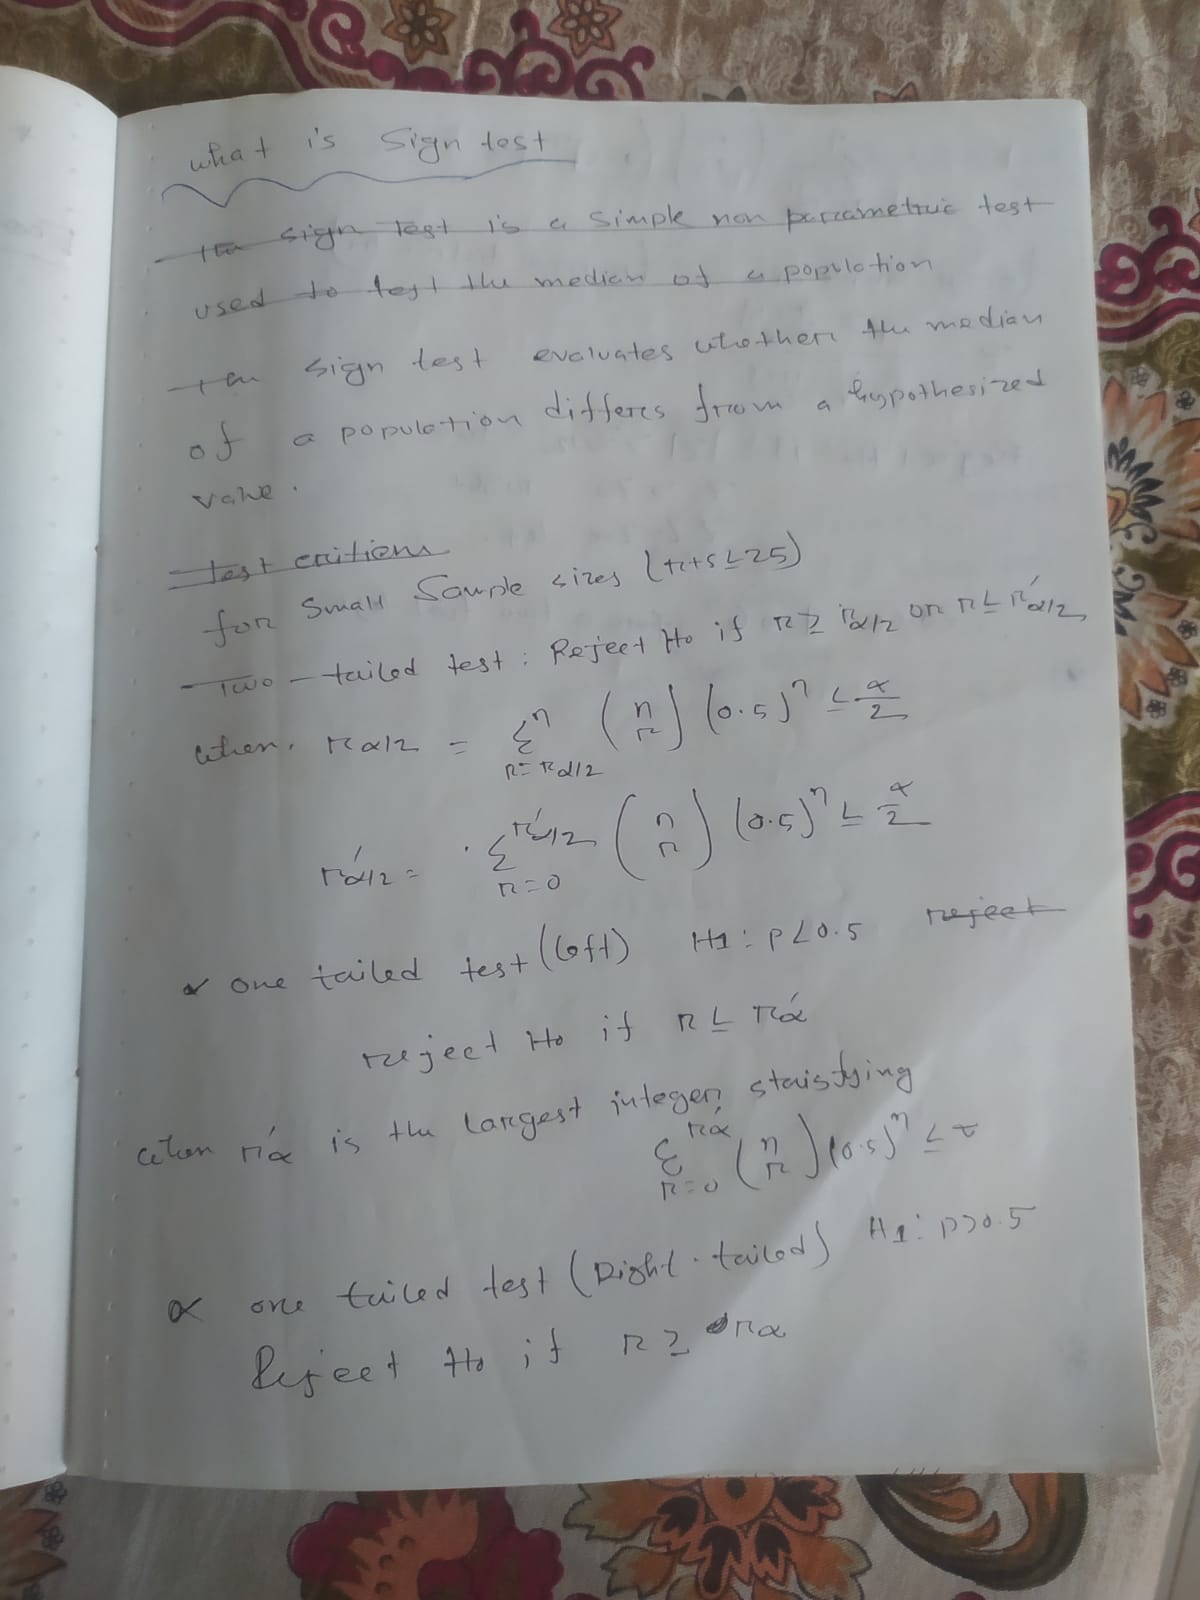 what is Sign test
The sign Test is a simple non parametric test
used to test the median of a population
The sign test evaluates whether the median
of a population differs from a hypothesized
value.
Test critien
for small Sample sizes (r+s ≤ 25)
Two-tailed test: Reject H₀ if r ≥ r_α/2 or r ≤ r'_α/2
when, r_α/2 = Σ^n_{r=r_α/2} (n r) (0.5)^n ≤ α/2
r'_α/2 = Σ^{r'_α/2}_{r=0} (n r) (0.5)^n ≤ α/2
one tailed test (left) H1: p<0.5 reject
reject H₀ if r ≤ r'_α
when r'_α is the largest integer staistying
Σ^{r'_α}_{r=0} (n r) (0.5)^n ≤
one tailed test (Right-tailed) H1: p>0.5
Reject H₀ if r ≥ r_α